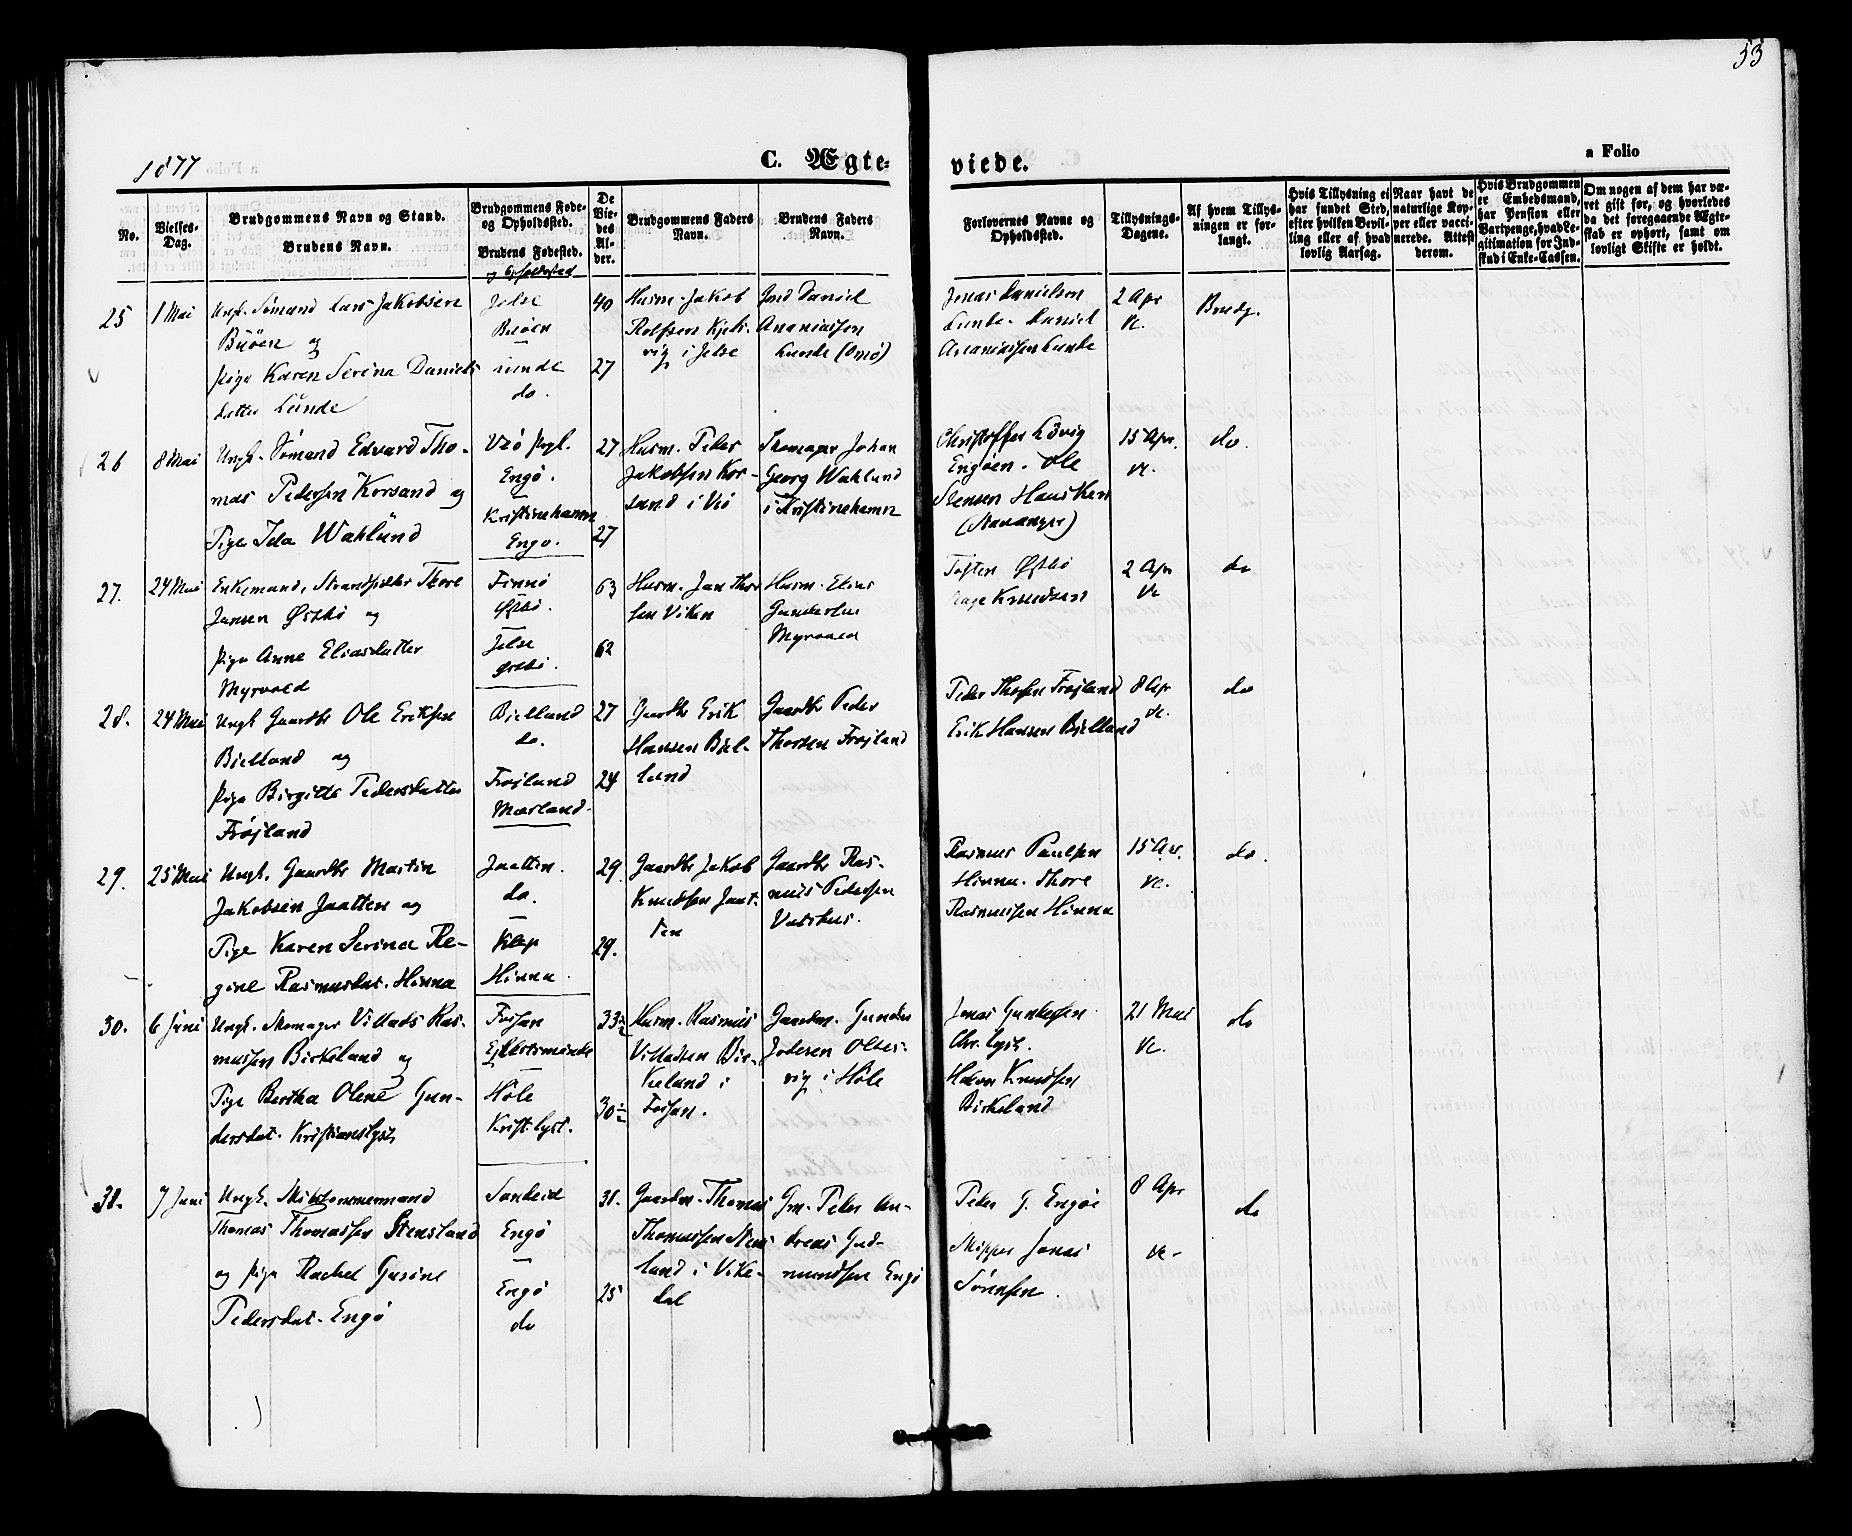 53
1877
C. Ægte-
viede.
a Folio
No.
Vielses-
Dag.
Brudgommens Navn og Stand.
Brudens Navn.
Brudgommens Føde-
og Opholdssted.
Brudens Fødested.
og Opholdssted
De
Vie-
des
Al-
der.
Brudgommens Faders
Navn.
Brudens Faders
Navn.
Forlovernes Navne og
Opholdssted.
Tillysnings-
Dagene.
Af hvem Tillys-
ningen er for-
langt.
Hvis Tillysning ei
har fundet Sted,
efter hvilken Bevil-
ling eller af hvad
lovlig Aarsag.
Naar havt de
naturlige Kop-
per eller vacci-
nerede. Attest
derom.
Hvis Brudgommen
er Embedsmand,
har Pension eller
Vartpenge, hvad Le-
gitimation for Ind-
skud i Enke-Cassen.
Om nogen af dem har væ-
ret gift før, og hvorledes
da det foregaaende Ægte-
skab er ophørt, samt om
lovligt Skifte er holdt.
25
1 Mai
Ungk. Sømand Lars Jakobsen
Buöen og
Pige Karen Serina Daniels
datter Lunde
Jelse
Buöen
Lunde
do.
40
27
Husm. Jakob
Rolfsen Kjels-
vig i Jelse
Gmd Daniel
Ananiassen
Lunde (Omö)
Jonas Danielsen
Lunde. Daniel
Ananiassen Lunde
2 Apr
&c.
Brudg.
26
8 Mai
Ungk. Sömand Edvard Tho-
mas Pedersen Korsand og
Pige Ida Wahlund
Viö Pgl.
Engö.
Kristinehamn
Engö.
27
27
Husm. Peder
Jakobsen Kor-
sand i Viö
Skomager Johan
Georg Wahlund
i Kristinehamn
Christoffer Lövig
Engöen. Ole
Stensen Hausken
(Stavanger)
15 Apr.
&c.
do.
27.
24 Mai
Enkemand, Strandsidder Thore
Jansen Östbö og
Pige Anne Eliasdatter
Myrvold
Finnö
Östbö.
Jelse
Östbö.
63
62
Husm. Jan Thor
sen Viken
Husm. Elias
Gundersen
Myrvold
Tosten Östbö
Aage Knudsen
2 Apr
&c
do
28.
24 Mai
Ungk Gaardbr Ole Eriksen
Bjelland og
Pige Birgitte Pedersdatter
Fröjland
Bjelland
do.
Fröjland
Mærland.
27
24
Gaardbr Erik
Hansen Bjel-
land
Gaardbr Peder
Thorsen Fröjland
Peder Thorsen Fröjland
Erik Hansen Bjelland
8 Apr
&c.
do
29.
25 Mai
Ungk. Gaardbr Martin
Jakobsen Jaatten og
Pige Karen Serina Re-
gine Rasmusdat. Hinna
Jaatten.
do.
Klep
Hinna.
29.
29.
Gaardbr Jakob
Knudsen Jaat-
ten
Gaardbr Ras-
mus Pedersen
Rasmus Paulsen
Hinna. Thore
Rasmussen Hinna
15 Apr.
&c.
do.
30.
6 Juni
Ungk. Skomager Villads Ras-
mussen Birkeland og
Pige Bertha Olene Gun-
dersdat. Kristianslyst
Fossan
Höle
Krist.lyst.
33½
30½
Husm. Rasmus
Villadsen Bir-
keland i
Fossan.
Gaardm. Gunder
Oltes-
vig i Höle
Jonas Gundersen
Chr. lyst.
Haavar Knudsen
Birkeland
21 Mai
&c.
do
31.
7 Juni
Ungk. Skibstömmermand
Thomas Thomassen Stensland
og Pige Rachel Gurine
Pedersdat. Engö
Sandeid
Engö
Engö
do
31.
25
Gaardm. Thomas
Thomassen Stens
land i Vike-
dal
Gm. Peder An-
dreas Gud-
mundsen Engö
Peder G. Engöe
Skipper Jonas
Sörensen.
8 Apr
&c.
do